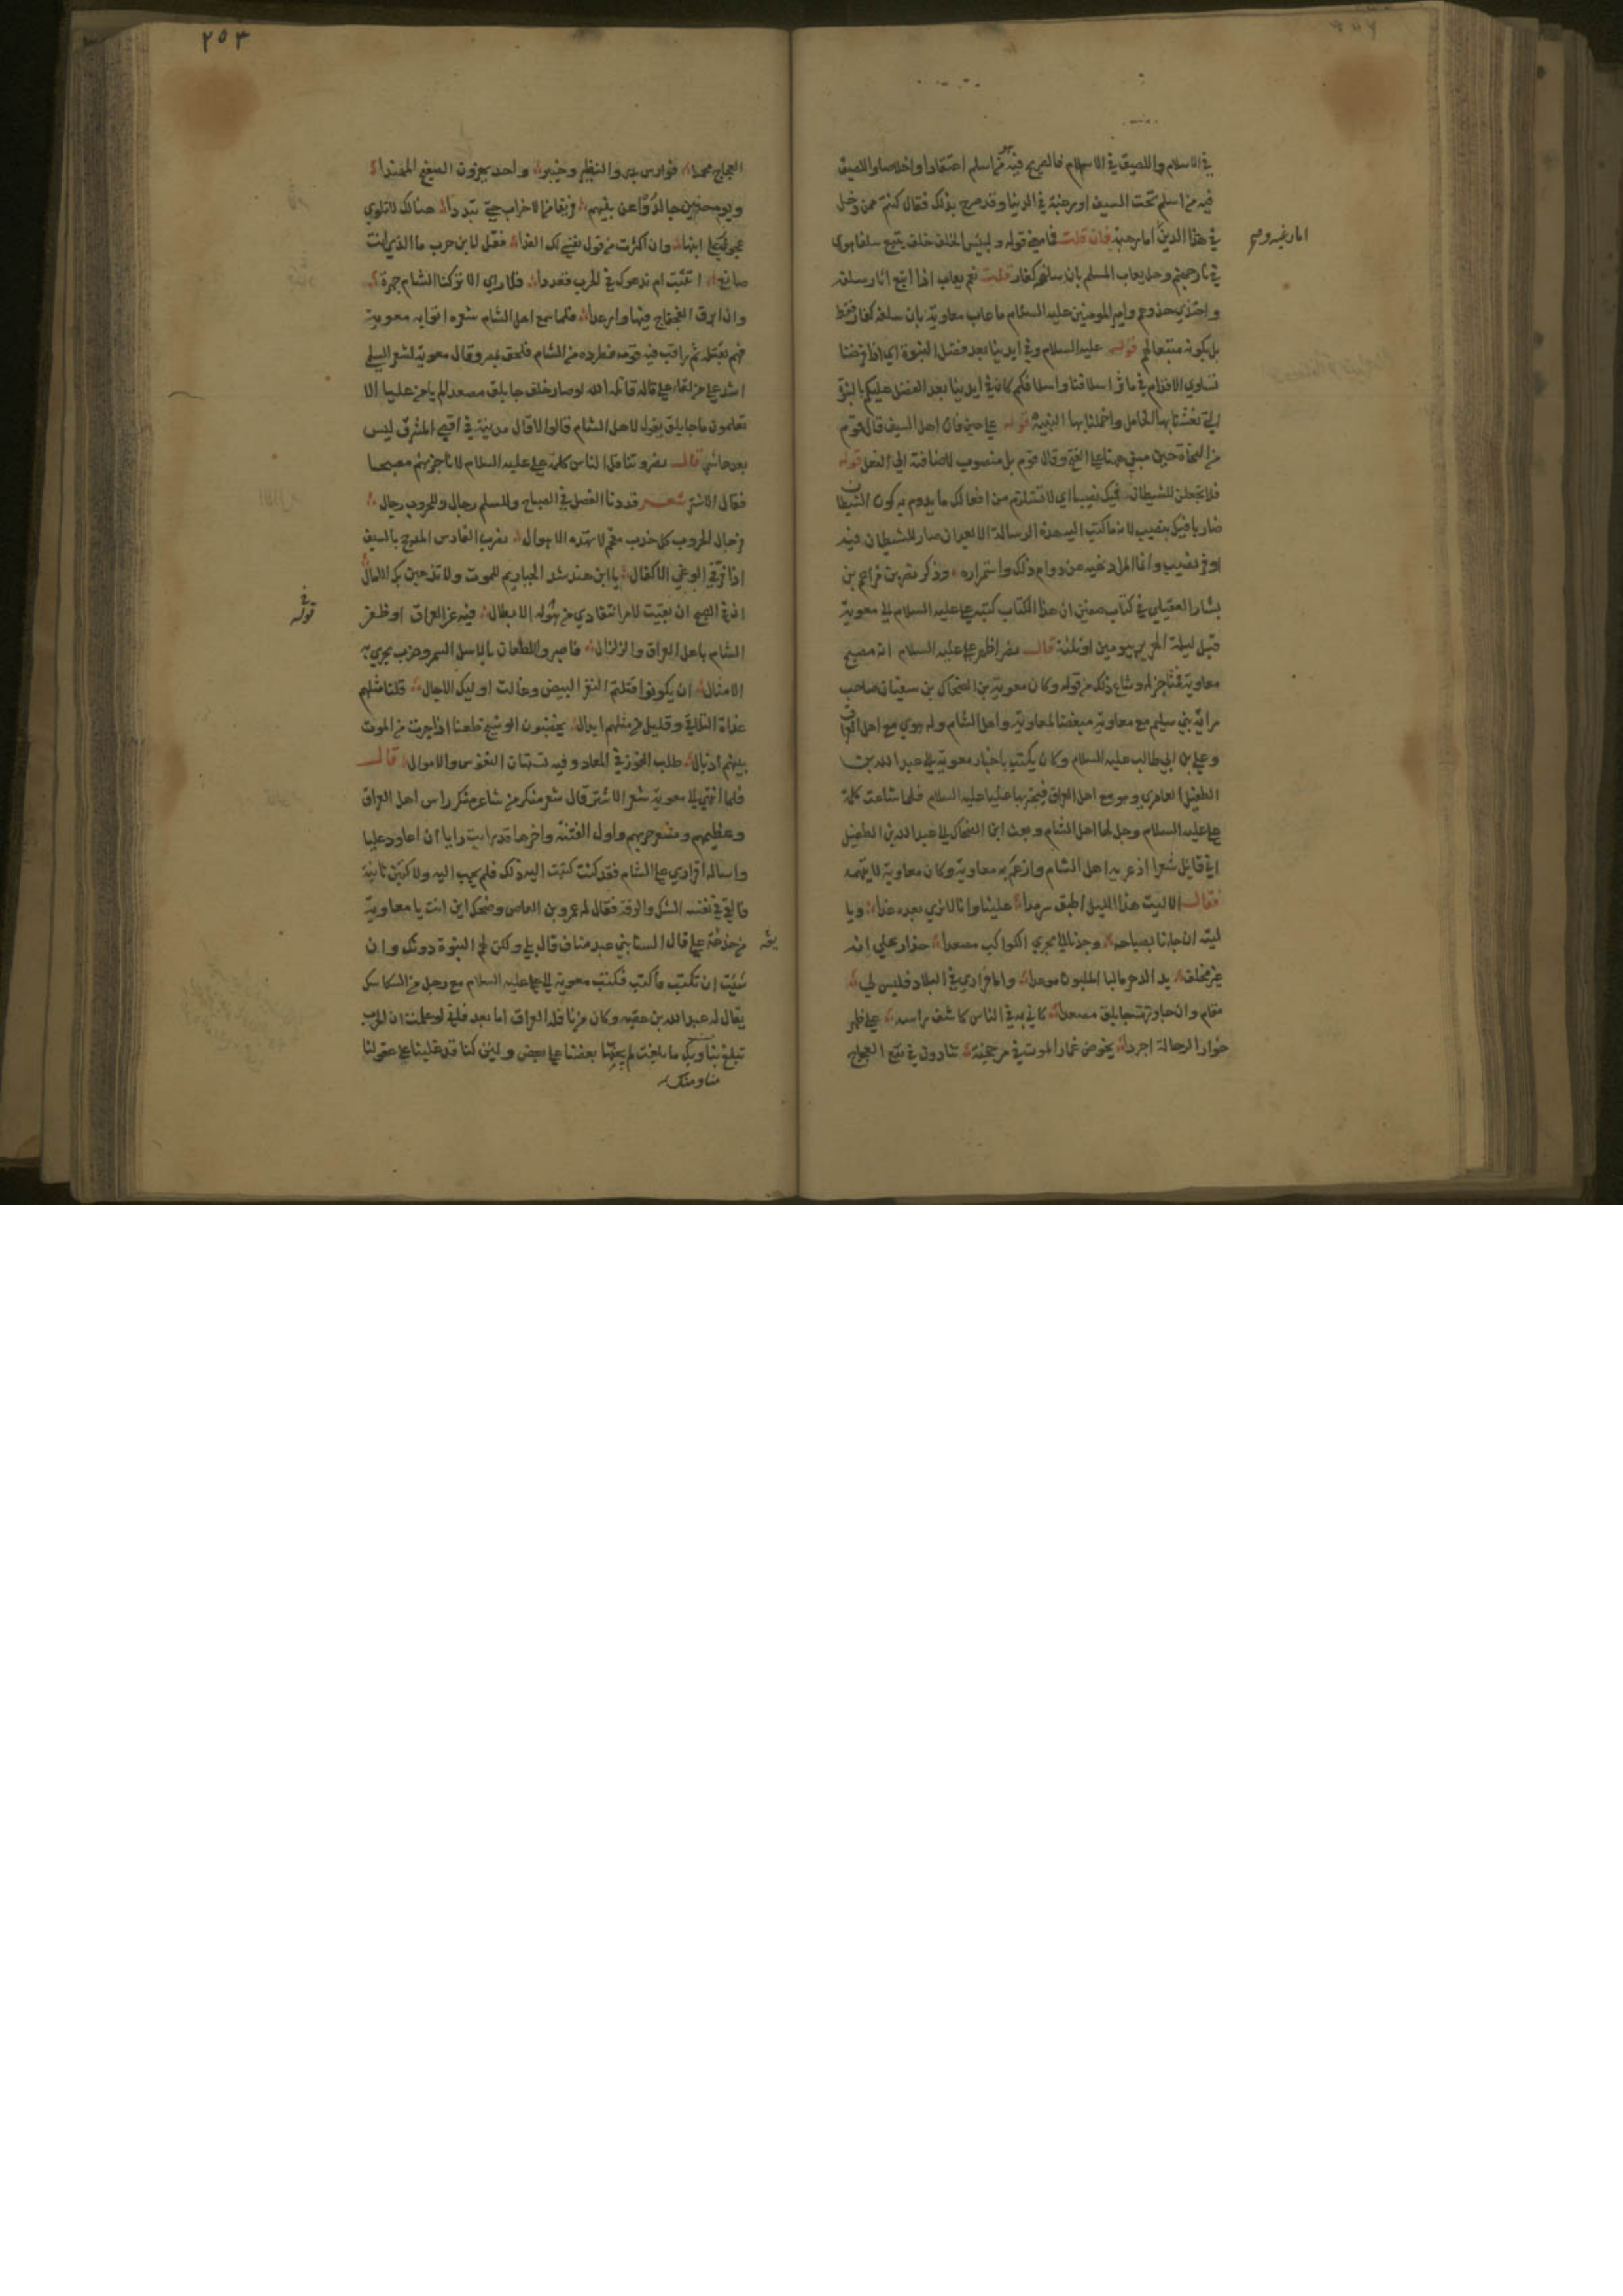 في الاسلام واللصيق في الاسلام فالصريح فيه هو من اسلم اعتقادا واخلاصا واللصيق
فيه من اسلم تحت السيف او رهبة في الدنيا وقد صرح بذلك فقال كنتم ممن دخل
في هذا الدين اما رهبة فان قلت فما معنى قوله ولبئس الخلف خلف يتبع سلفا هوى
اما رغبة و صح
في نار جهنم وهل يعاب المسلم بان سلفه كفار قلت نعم يعاب اذا اتبع اثار سلفه
واحتذي حذوهم وامير المومنين عليه السلام ما عاب معاوية بان سلفه كفار فقط
بل بكونه متبعا لهم قوله عليه السلام وفي ايدينا بعد فضل النبوة اي اذا فرضنا
تساوي الاقدام في ماثر اسلافنا واسلافكم كان في ايدينا بعد الفضل عليكم بالنبوة
التي نعشنا بها الخامل واخملنا بها النبيه قوله على حين فات اهل السيف قال قوم
من النحاة حين مبني هنا على الفتح وقال قوم بل منصوب لاضافته الى الفعل قوله
فلا تجعلن للشيطان فيك نصيبا اي لا تستلزم من افعالك ما يدوم به كون الشيطان
ضاربا فيك بنصيب لانه ما كتب اليه هذه الرسالة الا بعد ان صار للشيطان فيه
اوفر نصيب وانما المراد نهيه عن دوام ذلك واستمراره وذكر نصر بن مزاحم بن
بشار العقيلي في كتاب صفين ان هذا الكتاب كتبه علي عليه السلام الى معوية
قبل ليلة الهرير بيومين او ثلثة قال نصر اظهر علي عليه السلام انه مصبح
معاوية فناجز له وشاع ذلك من قوله وكان معوية بن الضحاك بن سفيان صاحب
راية بني سليم مع معاوية مبغضا لمعاوية واهل الشام وله هوي مع اهل العراق
وعلي بن ابي طالب عليه السلام وكان يكتب باخبار معوية الى عبد الله بن
الطفيل العامري وهو مع اهل العراق فيخبر بها عليا عليه السلام فلما شاعت كلمة
علي عليه السلام وجل لها اهل الشام وبعث ابن الضحاك الى عبد الله بن الطفيل
اني قايل شعرا اذعر به اهل الشام وارغم به معاوية وكان معاوية لا يتهمه
فقال الا ليت هذا الليل اطبق سرمدا علينا وانا لا نري بعده غدا ويا
ليته ان جانا بصباحه وجدنا الى مجري الكواكب مصعدا حذار علي انه
غير مخلف يد الدهر ما لبا الملبون موعدا واما فراري في البلاد فليس لي
مقام وان جاوزت جابلق مصعدا كاني به في الناس كاشف راسه على ظهر
خوار الرحالة اجردا يخوض غمار الموت في مرجحنة ينادون في نقع العجاج
٢٥٣
العجاج محمدا فوارس بدر والنضير وخيبر واحد يهزون الصفيح المهندا
ويوم حنين جالدوا عن نبيهم فريقا من الاحزاب حتى تبددا هنالك لا تلوي
عجوز على ابنها وان اكثرت من قول نفسي لك الفدا فقل لابن حرب ما الذي انت
صانع اتثبت ام ندعوك في الحرب قعددا فلا راي الا تركنا الشام جهرة
وان ابرق الفجفاج فيها وارعدا فلما سمع اهل الشام شعره اتوا به معوية
فهم بقتله ثم راقب فيه قومه فطرده من الشام فلحق بمصر وقال معوية لشعر السلمي
اشد على من لقاء علي قاله قاتله الله لو صار خلف جابلق مصعدا لم يامن عليا الا
تعلمون ما جابلق يقول لاهل الشام قالوا لا قال مدينة في اقصى المشرق ليس
بعدها شي قال نصر وتناقل الناس كلمة علي عليه السلام لاناجزنهم مصبحا
فقال الاشتر شعر قد دنا الفصل في الصباح وللسلم رجال وللحروب رجال
فرجال الحروب كل خدب مقحم لا تهده الاهوال يضرب الفارس المدجج بالسيف
اذا فر في الوغى الاكفال يا ابن هند شد الحيازيم للموت ولا تذهبن بك الامال
ان في الصبح ان بقيت لامرا تتفادي من هوله الابطال فيه عز العراق او ظفر
قوله
الشام باهل العراق والزلزال فاصبروا للطعان بالاسل السمر وضرب يجري به
الامثال ان يكونوا قتلتم النفر البيض وغالت اوليك الاجال فلنا مثلهم
غداة التلاقي وقليل من مثلهم ابدال يخضبون الوشيج طعنا اذا جرت من الموت
بينهم اذيال طلب الفوز في المعاد وفيه تستهان النفوس والاموال قال
فلما انتهي الى معوية شعر الاشتر قال شعر منكر من شاعر منكر راس اهل العراق
وعظيمهم ومسعر حربهم واول الفتنة واخرها قد رايت رايا ان اعاود عليا
واساله اقراري على الشام فقد كنت كتبت اليه ذلك فلم يجب اليه ولاكتبن ثانية
فالقي في نفسه الشك والرقة فقال له عمرو بن العاص وضحك اين انت يا معاوية
من خدعة علي قال السنا بني عبد مناف قال بلى ولكن لهم النبوة دونك وان
شئت ان تكتب فاكتب فكتب معوية الى علي عليه السلام مع رجل من السكاسك
يقال له عبد الله بن عقبة وكان من ناقلة العراق اما بعد فاني لو علمت ان الحرب
تبلغ بنا وبك ما بلغت لم يجنها بعضنا على بعض ولئن كنا قد غلبنا على عقولنا
منا ومنك